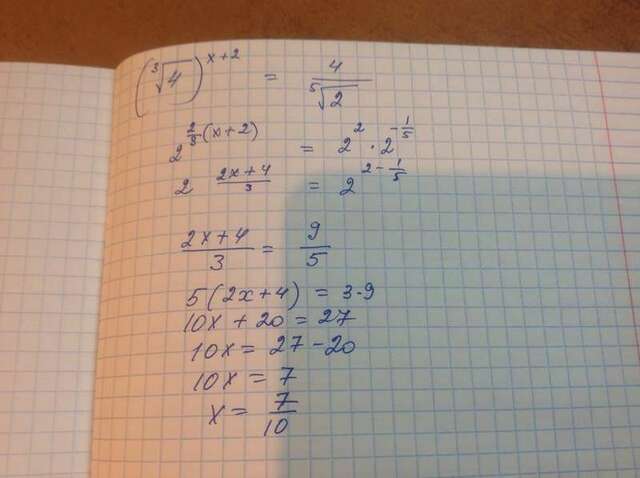 (∛4)^(x+2) = 4/⁵√2
2^(2/3(x+2)) = 2^2 · 2^(-1/5)
2^((2x+4)/3) = 2^(2-1/5)
(2x+4)/3 = 9/5
5(2x+4) = 3·9
10x + 20 = 27
10x = 27 - 20
10x = 7
x = 7/10